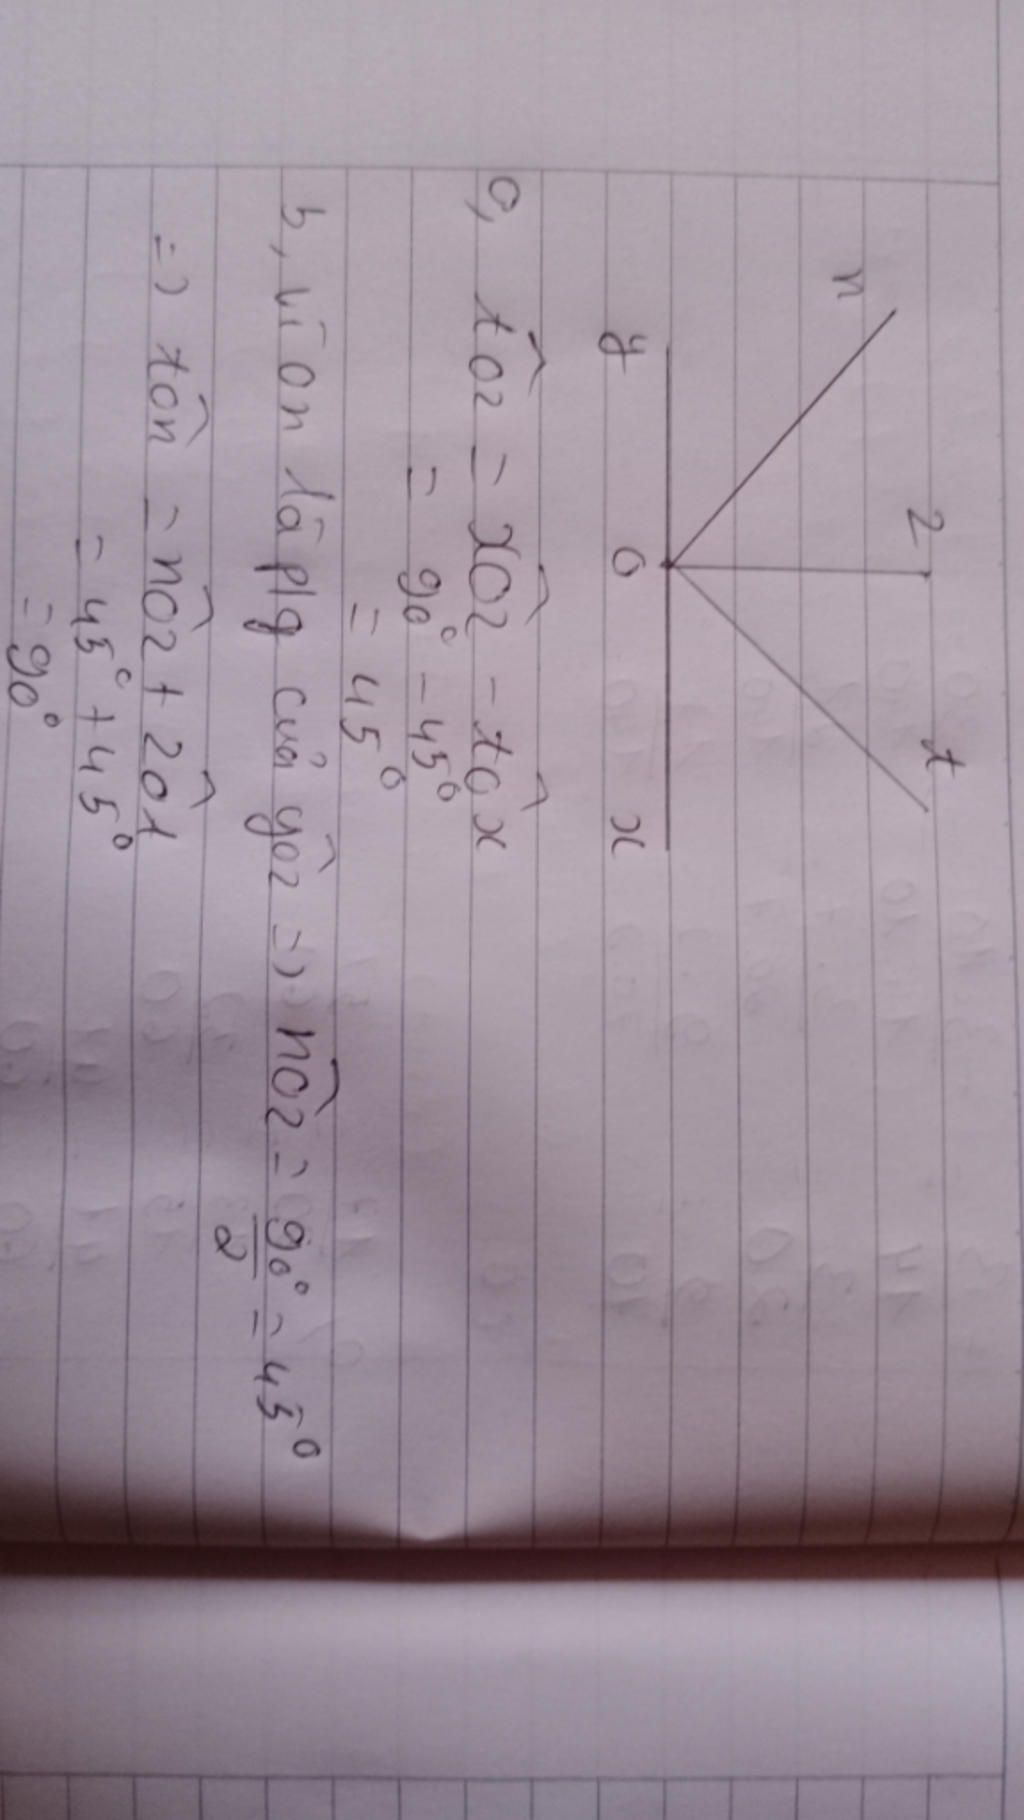 n
z
t
y
O
x
a, tôz = xôz - tôx
= 90° - 45°
= 45°
b, vì on là p/g của yôz => nôz = 90°/2 = 45°
=> tôn = nôz + zôt
= 45° + 45°
= 90°